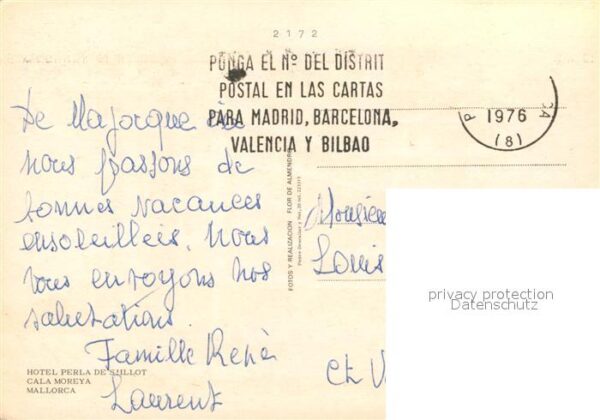 2172
PONGA EL Nº DEL DISTRIT
POSTAL EN LAS CARTAS
PARA MADRID, BARCELONA,
VALENCIA Y BILBAO
1976
(8)
De Majorque
nous passons de
bonnes vacances
ensoleilleis. Nous
vous envoyons nos
salutations.
Famille René
Laurent
HOTEL PERLA DE S'ILLOT
CALA MOREYA
MALLORCA
FOTOS Y REALIZACION FLOR DE ALMENDRO
Monsieu
Louis
Ch V
privacy protection
Datenschutz